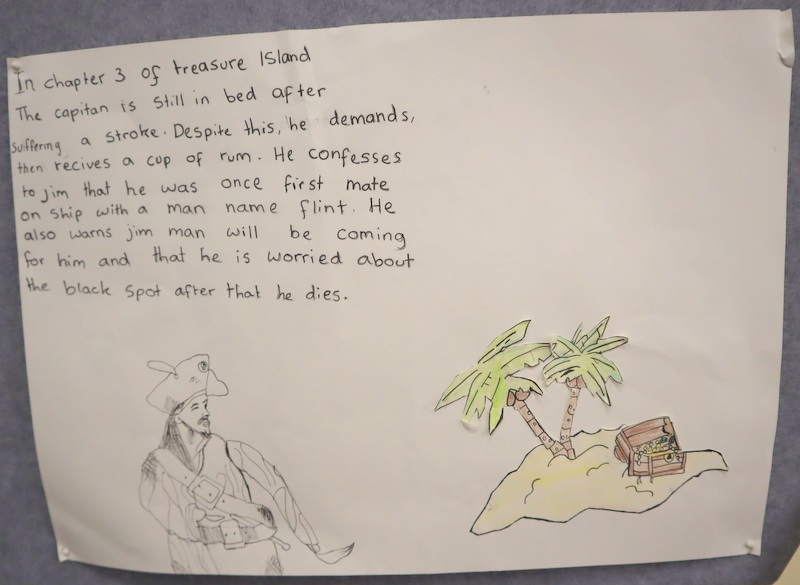 In chapter 3 of treasure Island
The capitan is still in bed after
suffering a stroke. Despite this, he demands,
then recives a cup of rum. He confesses
to jim that he was once first mate
on ship with a man name flint. He
also warns jim man will be coming
for him and that he is worried about
the black spot after that he dies.